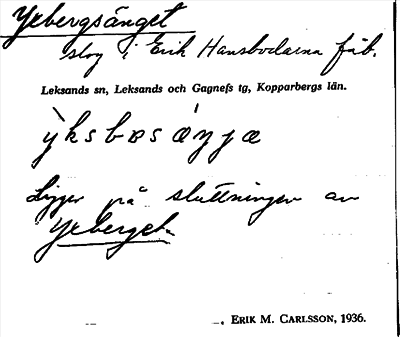 Yxbergsänget
slog i Erik Hansbodarna fäb.
Leksands sn, Leksands och Gagnefs tg, Kopparbergs län.
Ligger på sluttningen av
Yxberget.
ERIK M. CARLSSON, 1936.